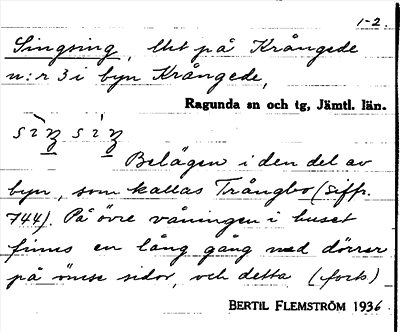 1-2.
Singsing, litet på Krångede
n:r 3 i byn Krångede,
Ragunda sn och tg, Jämtl. län.
Belägen i den del av
byn, som kallas Trångbo (siffr.
744). På övre våningen i huset
finns en lång gång med dörrar
på ömse sidor, och detta (forts)
BERTIL FLEMSTRÖM 1936